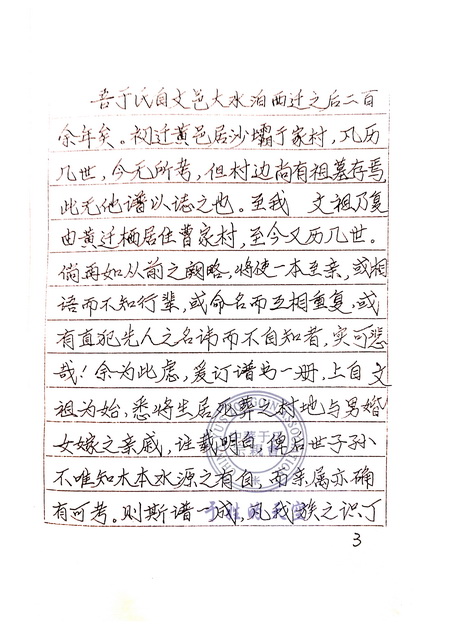 吾于氏自文邑大水泊西迁之后二百
余年矣。初迁黄邑居沙壩于家村，凡历
几世，今无所考，但村边尚有祖墓存焉
此无他谱以誌之也。至我 文祖乃复
由黄迁栖居住曹家村，至今又历几世。
倘再如从前之阙略，将使一本至亲，或相
语而不知行辈，或命名而互相重复，或
有直犯先人之名讳而不自知者，实可悲
哉！余为此虑，爰订谱书一册，上自 文
祖为始，悉将生居死葬之村地与男婚
女嫁之亲戚，注载明白，俾后世子孙
不唯知木本水源之有自，而亲属亦确
有可考。则斯谱一成，凡我族之识丁
3